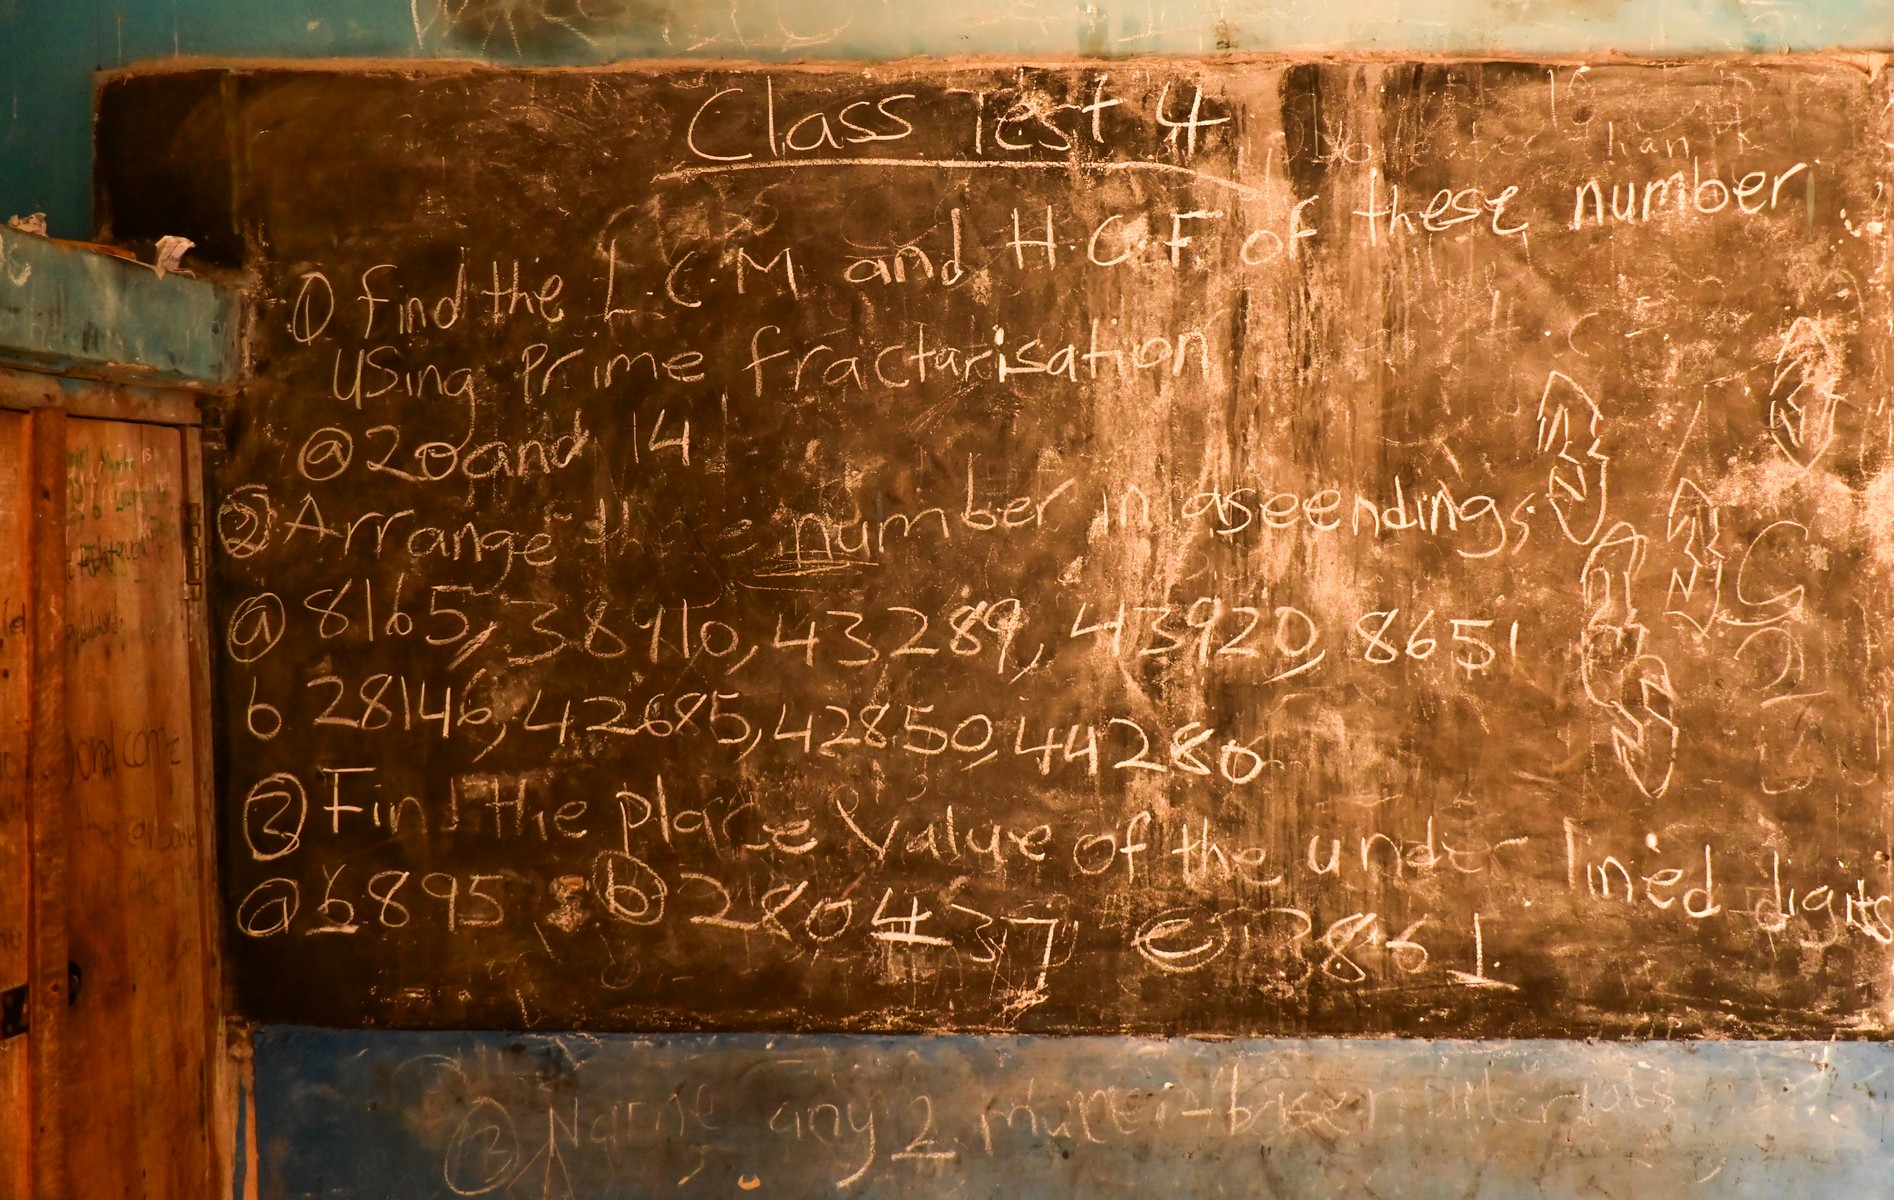 Class Test 4
① find the L.C.M and H.C.F of these number
Using Prime fractarisation
ⓐ 20 and 14
② Arrange these number in aseendings
ⓐ 8165, 38910, 43289, 43920, 8651
b 28146, 42685, 42850, 44280
③ Find the place value of the under lined digits
ⓐ 6895 ⓑ 280437 ⓒ 3861
② Name any 2